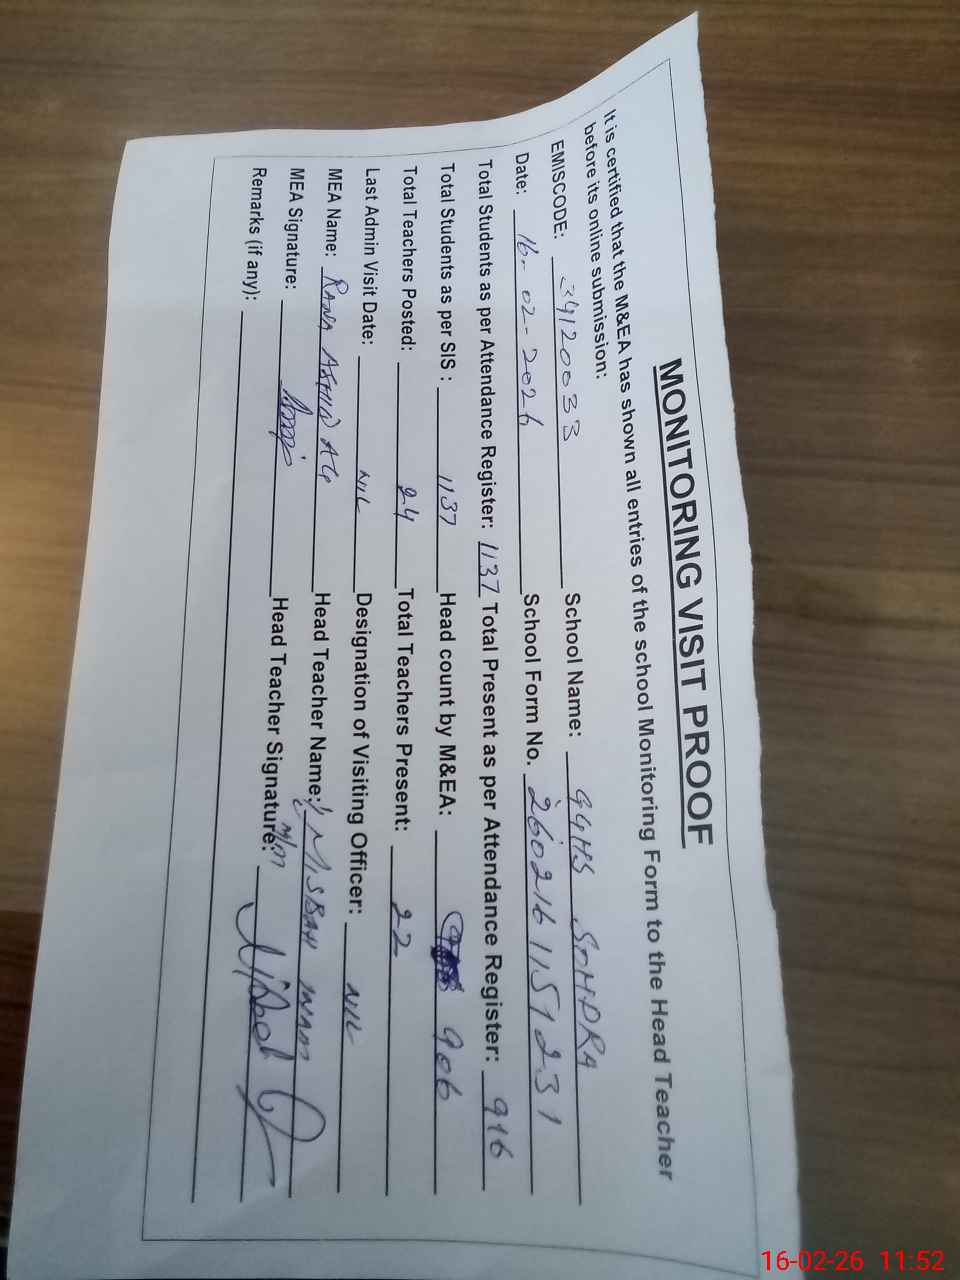 MONITORING VISIT PROOF
It is certified that the M&EA has shown all entries of the school Monitoring Form to the Head Teacher
before its online submission:
EMISCODE: 34120033 School Name: GGHS SOHDRA
Date: 16-02-2026 School Form No. 2602161151231
Total Students as per Attendance Register: 1137 Total Present as per Attendance Register: 916
Total Students as per SIS : 1137 Head count by M&EA: 906
Total Teachers Posted: 24 Total Teachers Present: 22
Last Admin Visit Date: NIL Designation of Visiting Officer: NIL
MEA Name: RANA Head Teacher Name: MISBAH
MEA Signature: Head Teacher Signature:
Remarks (if any):
16-02-26 11:52